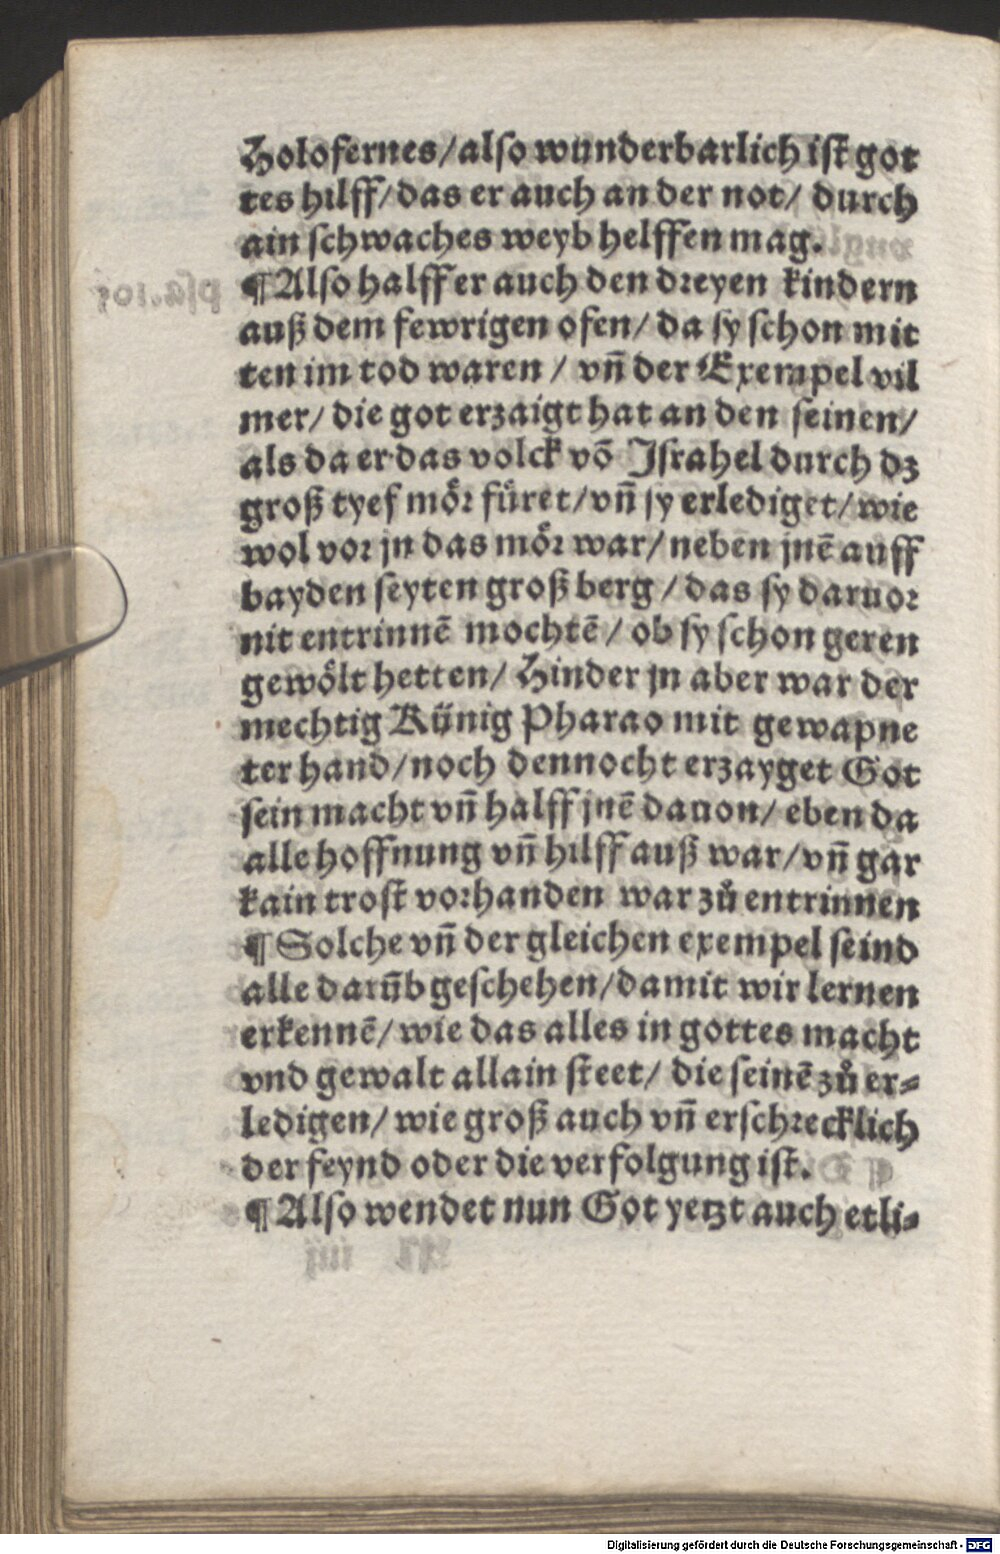 Holofernes/also wunderbarlich ist got
tes hilff/das er auch an der not/ durch
ain schwaches weyb helffen mag.
¶Also halff er auch den dreyen kindern
auß dem fewrigen ofen/ da sy schon mit
ten im tod waren / vñ der Exempel vil
mer/ die got erzaigt hat an den seinen/
als da er das volck võ Israhel durch dz
groß tyef moͤr fuͤret/vñ sy erlediget/wie
wol vor jn das moͤr war/neben jnẽ auff
bayden seyten groß berg / das sy daruor
nit entrinnẽ mochtẽ / ob sy schon geren
gewoͤlt hetten/ Hinder jn aber war der
mechtig Künig Pharao mit gewapne
ter hand/noch dennocht erzayget Got
sein macht vñ halff jnẽ dauon/ eben da
alle hoffnung vñ hilff auß war/vñ gar
kain trost vorhanden war zů entrinnen
¶Solche vñ der gleichen exempel seind
alle darũb geschehen/damit wir lernen
erkennẽ/ wie das alles in gottes macht
vnd gewalt allain steet/ die seinẽ zů er⸗
ledigen/ wie groß auch vñ erschrecklich
der feynd oder die verfolgung ist.
¶Also wendet nun Got yetzt auch etli⸗
Digitalisierung gefördert durch die Deutsche Forschungsgemeinschaft - DFG